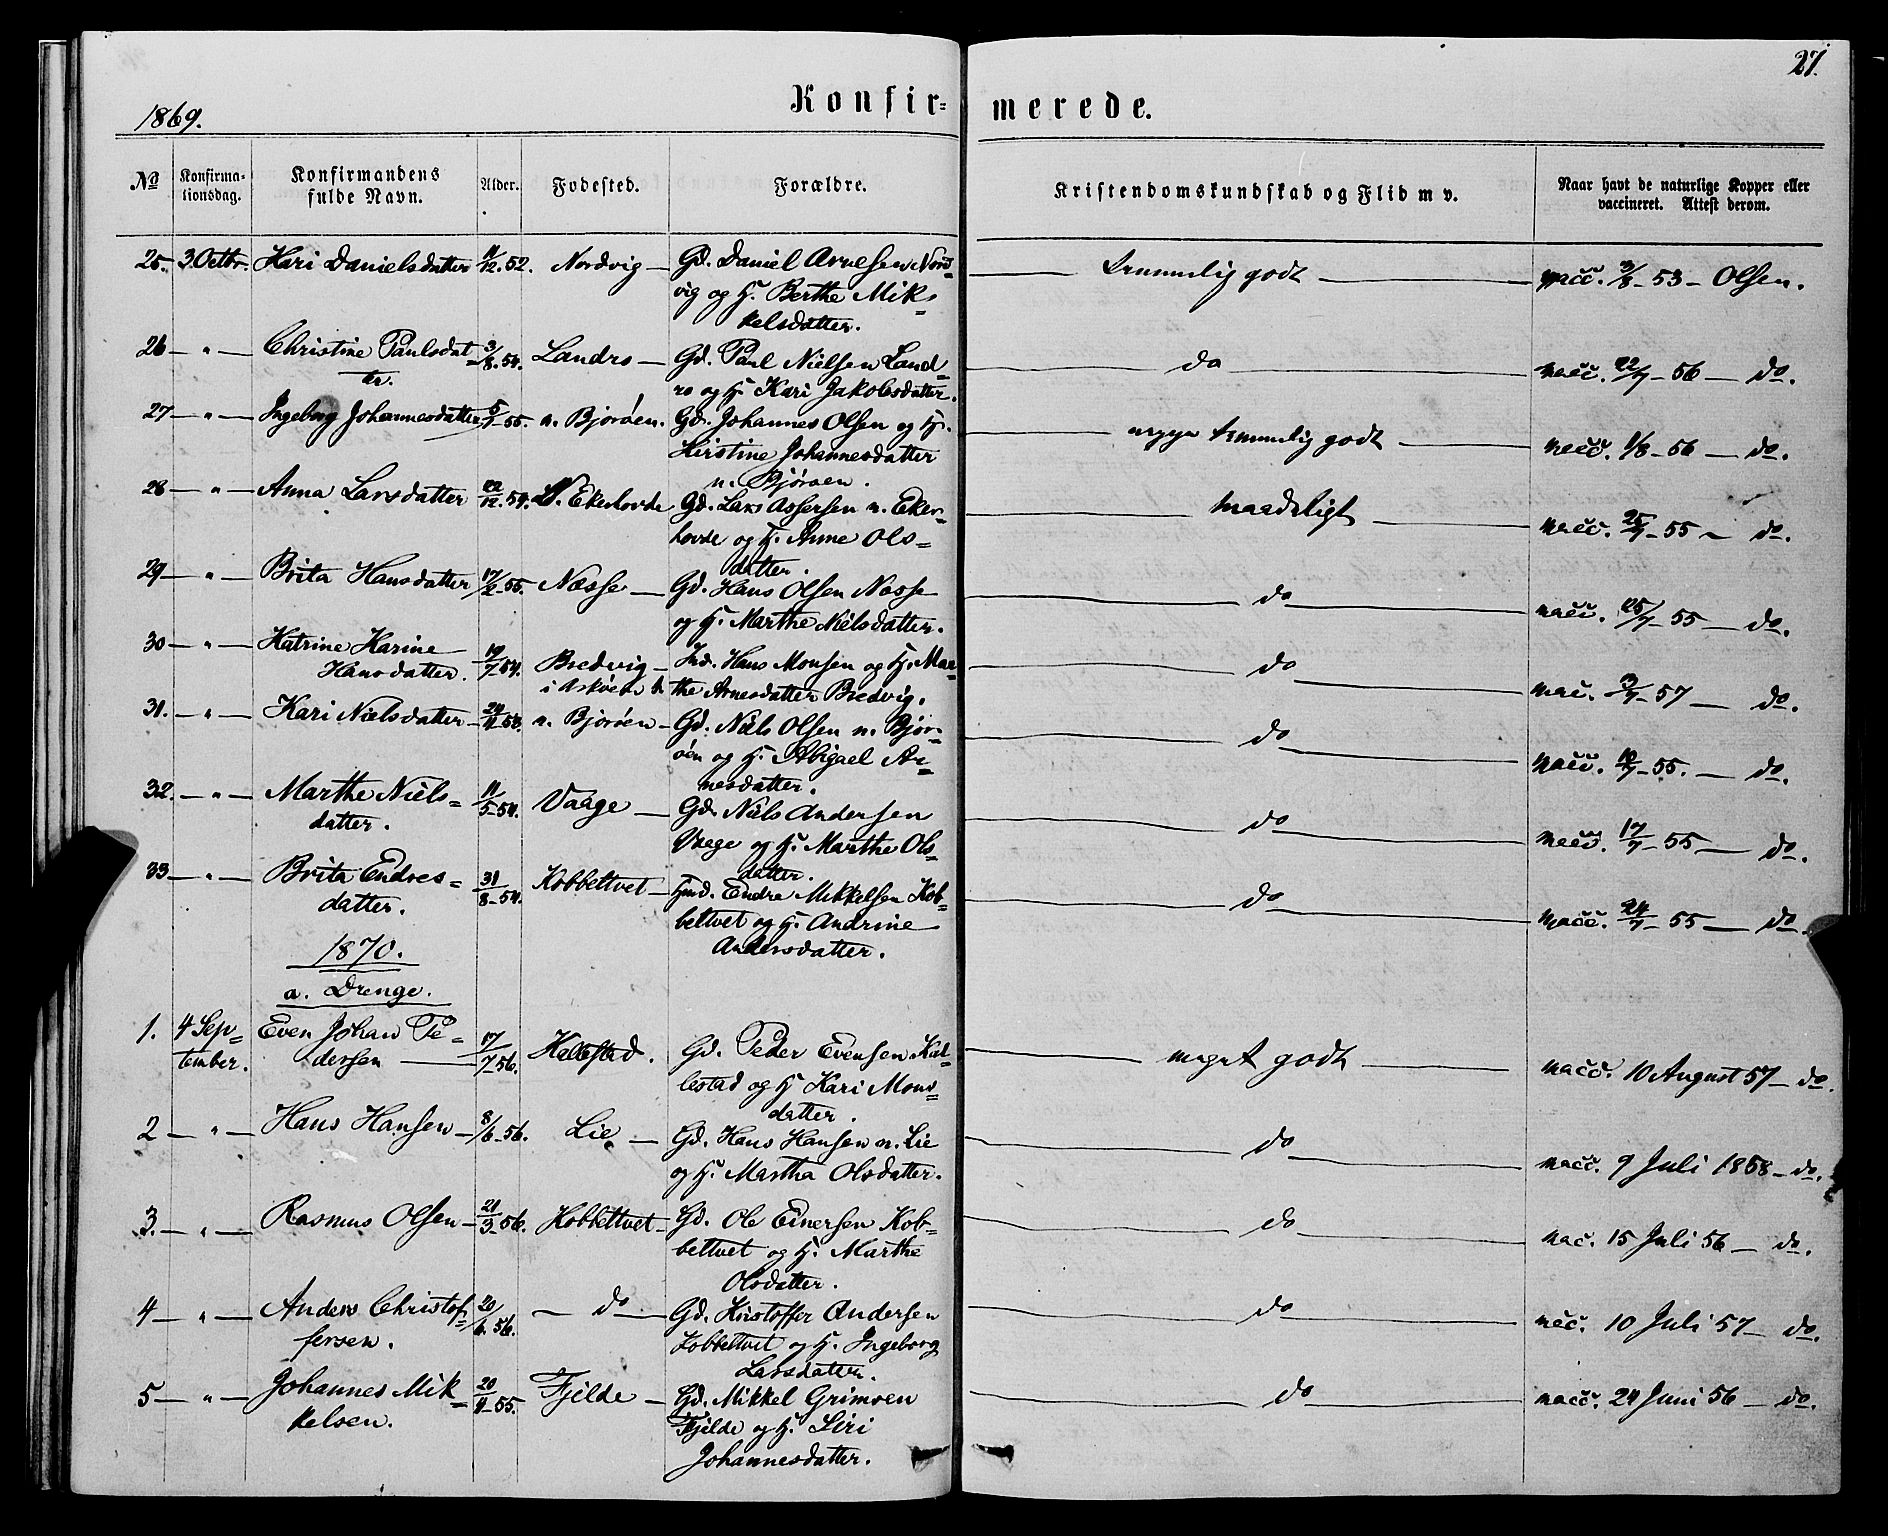 27.
1869.
Konfir-
merede.
No
Konfirma-
tionsdag.
Konfirmandens
fulde Navn.
Alder.
Fødested.
Forældre.
Kristendomskundskab og Flid m v.
Naar havt de naturlige Kopper eller
vaccineret. Attest derom.
25. 3. Octbr. Kari Danielsdatter 11/12. 52. Nordvig — Gd. Daniel Arnesen Nord-
vig og H. Berthe Mik-
kelsdatter.
temmelig godt — vacc. 3/8 - 53 - Olsen.
26 — " — Christine Paulsdat-
ter. 3/8. 54. Landro — Gd. Paul Nielsen Land-
ro og H. Kari Jakobsdatter.
do — vacc. 22/7 - 56 — do.
27 — " — Ingeborg Johannesdatter 5/7 - 55. n. Bjoröen. Gd. Johannes Olsen og H.
Kirstine Johannesdatter
n. Björoen.
temmelig godt — vacc. 1/8 - 56 — do.
28 — " — Anna Larsdatter 22/12. 54. Ekerhovde Gd. Lars Assersen n. Eker-
hovde og H. Anne Ols-
datter.
maadeligt — vacc. 25/7 - 55 — do.
29 — " — Brita Hansdatter 17/2 - 55. Nesse — Gd. Hans Olsen Nesse
og H. Marthe Nielsdatter.
do — vacc. 25/7 - 55 — do.
30 — " — Katrine Karine
Hansdatter. 19/7 - 54. Bredvig —
i Askøen
Ind. Hans Monsen og H. Mar-
the Arnesdatter Bredvig.
do — vac. 3/7 - 57 — do.
31. — " — Kari Nielsdatter — 24/11 - 53. n. Bjoröen — Gd. Niels Olsen n. Bjor-
öen og H. Abigael Ar-
nesdatter.
do — vacc. 18/7 - 55. — do.
32. — " — Marthe Niels-
datter. 11/5 - 54. Vaage — Gd. Niels Andersen
Vaage og H. Marthe Ols-
datter.
do — vacc. 17/7 - 55 — do.
33 — " — Brita Endres-
datter. 31/8 - 54. Kobbeltvet — Hmd. Endre Mikkelsen Kob-
beltvet og H. Andrine
Andersdatter.
do — vacc. 24/7 - 55 — do.
1870.
a. Drenge.
1. 4 Sep-
tember. Even Johan Pe-
dersen — 17/7 - 56. Kallestad. Gd. Peder Evensen Kal-
lestad og H. Kari Mons-
datter.
meget godt — vacc. 10 August 57 — do.
2 — " — Hans Hansen — 8/6 - 56. Lie — Gd. Hans Hansen n. Lie
og H. Martha Olsdatter.
do — vacc. 9 Juli 1858 — do.
3. — " — Rasmus Olsen — 21/3 - 56. Kobbeltvet — Gd. Ole Einersen Kob-
beltvet og H. Marthe
Olsdatter.
do — vac. 15 Juli 56 — do.
4 — " — Anders Christof-
fersen. 20/6. 56. — do — Gd. Kristoffer Andersen
Kobbeltvet og H. Ingeborg
Larsdatter.
do — vac. 10 Juli 57 — do.
5 — " — Johannes Mik-
kelsen. 20/11 - 55. Fjelde — Gd. Mikkel Grimsen
Fjelde og H. Siri
Johannesdatter.
do — vacc. 24 Juni 56 — do.